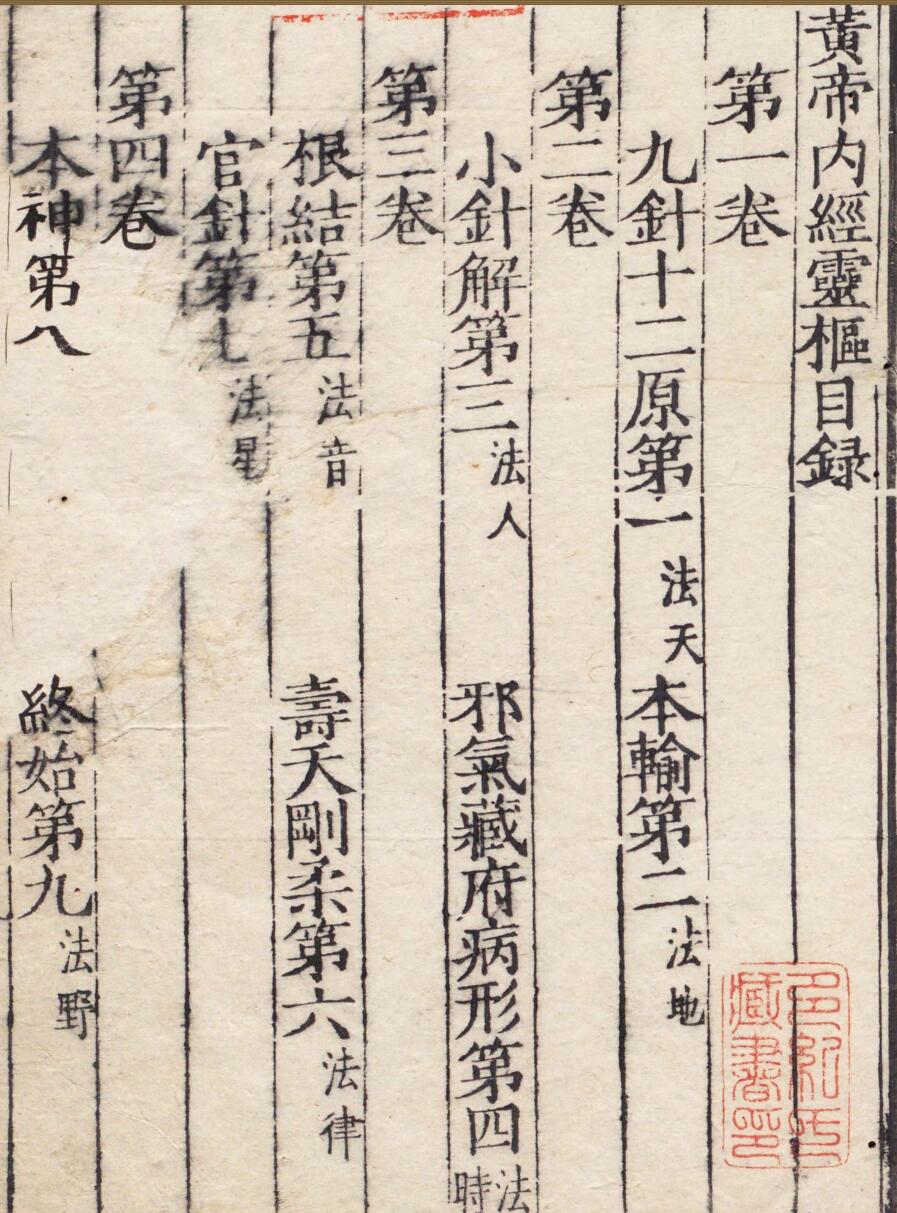 黃帝内經靈樞目録
第一卷
九針十二原第一 法天 本輸第二 法地
第二卷
小針解第三 法人 邪氣藏府病形第四 法時
第三卷
根結第五 法音 壽夭剛柔第六 法律
官針第七 法星
第四卷
本神第八 終始第九 法野
藏書印